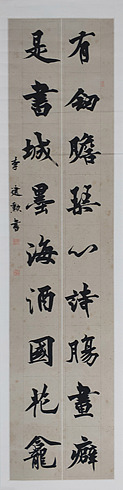 有劒膽琹心詩腸畫癖
是書城墨海酒國花龕
李建勳書